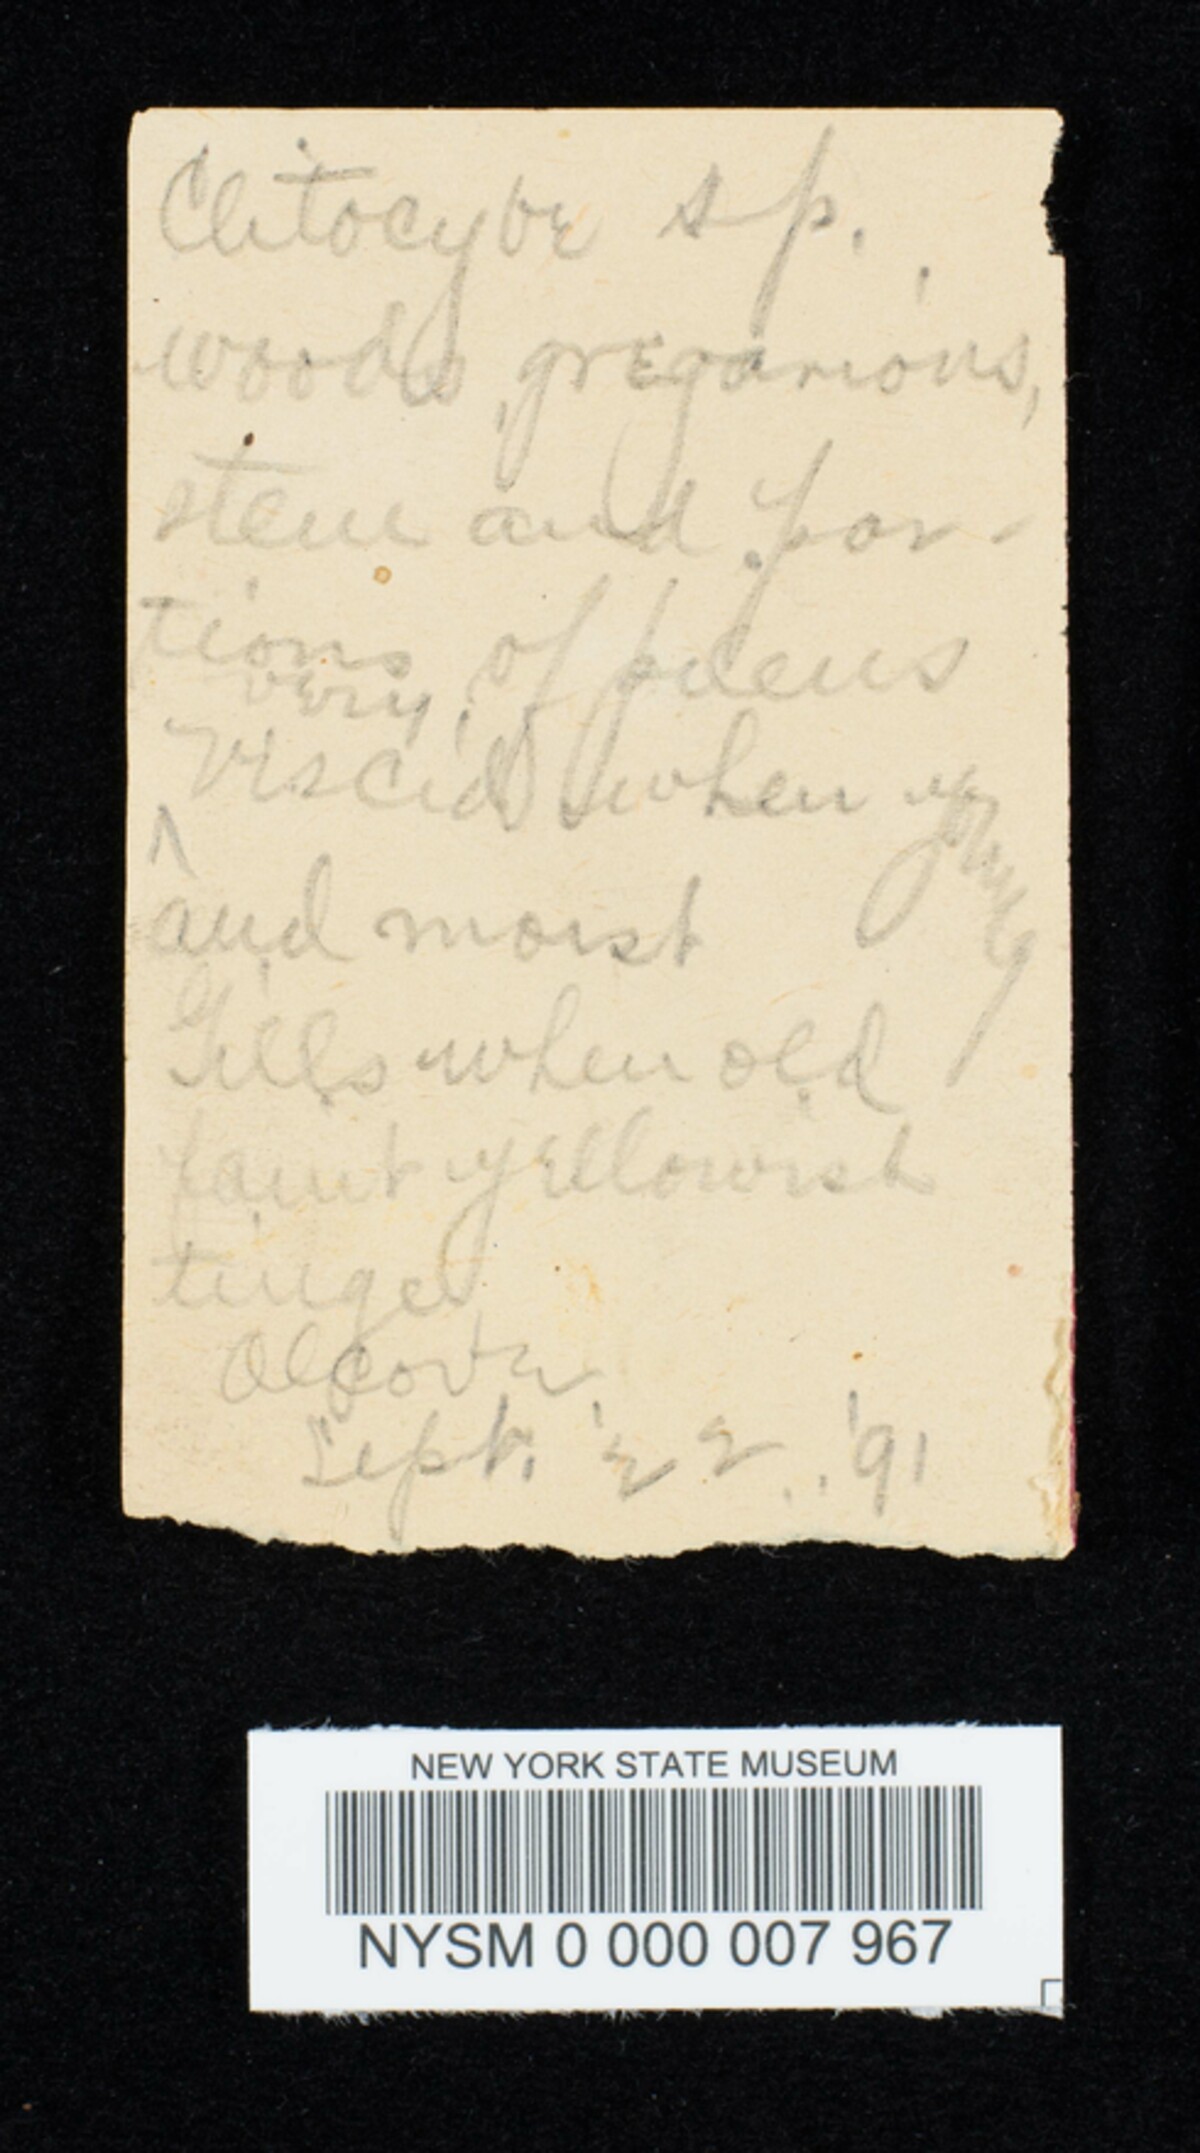 Clitocybe sp.
woods, gregarious,
stem and por-
tions of pileus
very
viscid when young
^
and moist
Gills when old
faint yellowish
tinge
Alcove,
Sept. 22. '91
NEW YORK STATE MUSEUM
NYSM 0 000 007 967